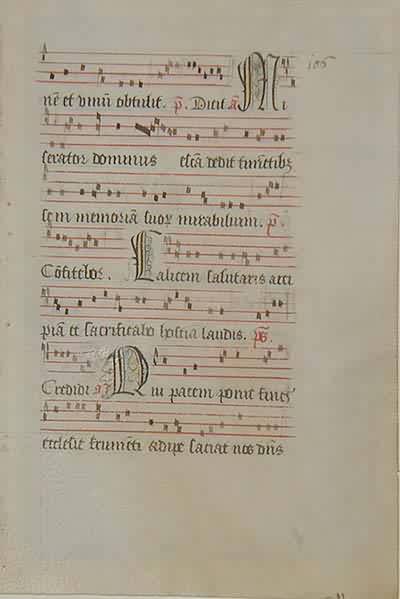 nẽ et vinũ obtulit. p̃. Dixit ã Mi
serator dominus escã dedit timẽtibꝫ
se in memoriã suoꝝ mirabilium. p̃.
Cõfitebor. Calicem salutaris acci
piã et sacrificabo hostiã laudis. pš.
Credidi ã Qui pacem ponit fines
ecclesie frumẽti adipe saciat nos dñs